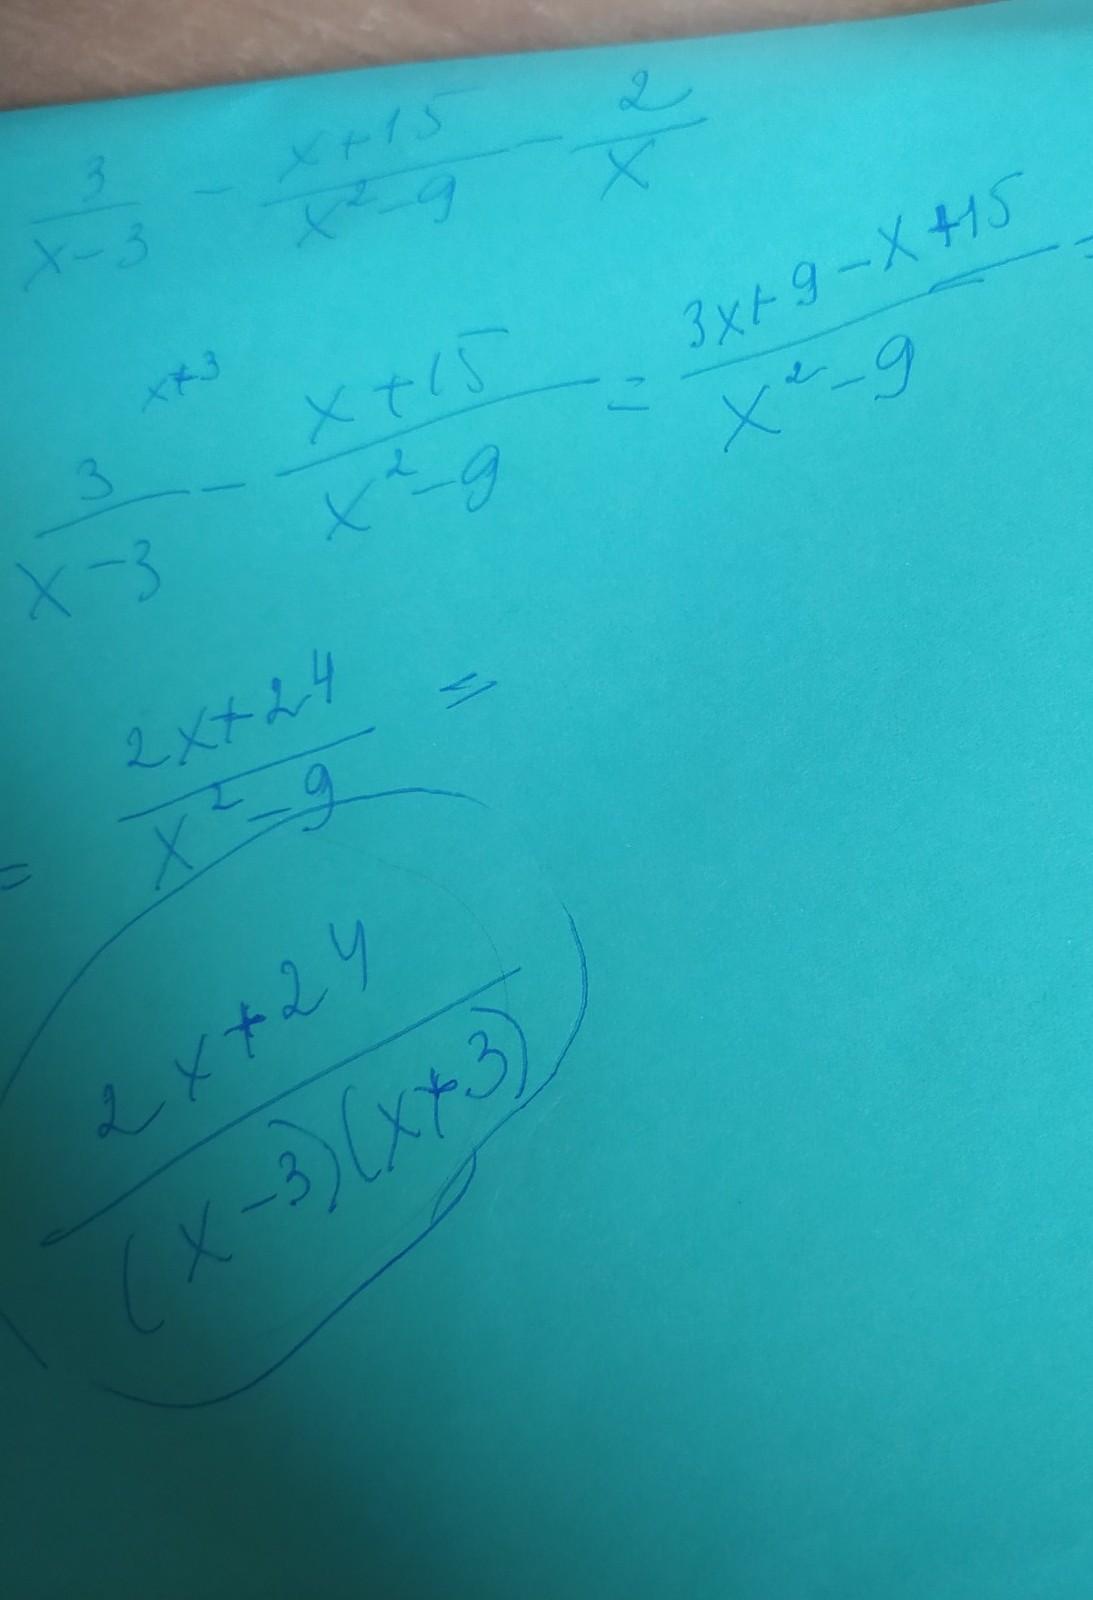 3/(x-3) - (x+15)/(x²-9) - 2/x
x+3
3/(x-3) - (x+15)/(x²-9) = (3x+9-x+15)/(x²-9) =
= (2x+24)/(x²-9) =
(2x+24)/((x-3)(x+3))